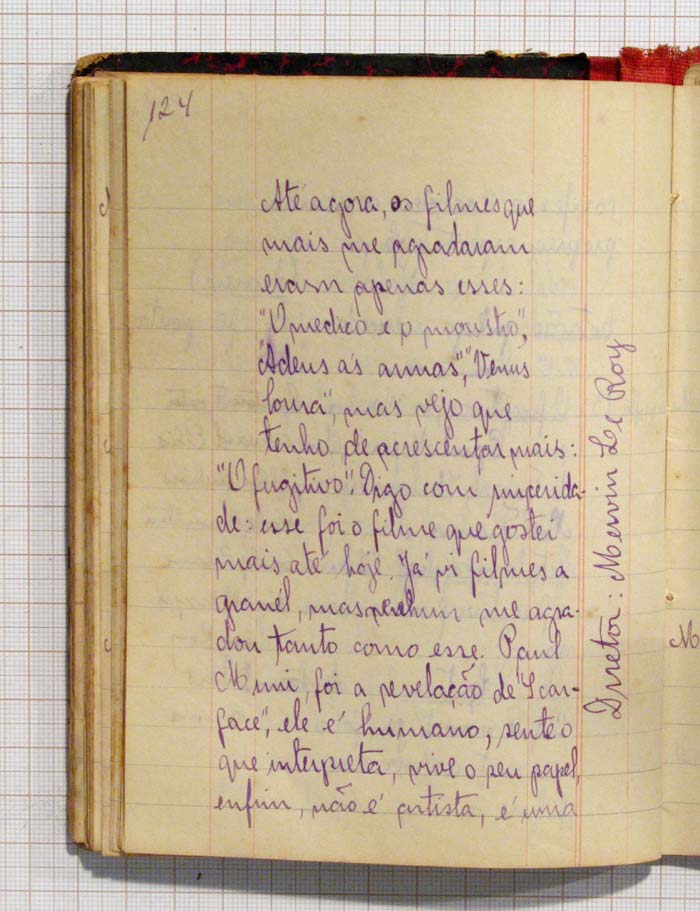 124
Até agora, os filmes que
mais me agradaram
eram apenas esses:
"O medico e o monstro",
"Adeus ás armas", "Venus
loura", mas vejo que
tenho de acrescentar mais:
"O fugitivo". Digo com sincerida-
de: esse foi o filme que gostei
mais até hoje. Já vi filmes a
granél, mas nenhum me agra-
dou tanto como esse. Paul
Muni, foi a revelação de "Scar-
face", ele é humano, sente o
que interpreta, vive o seu papel,
enfim, não é artista, é uma
Diretor: Mervin Le Roy
M